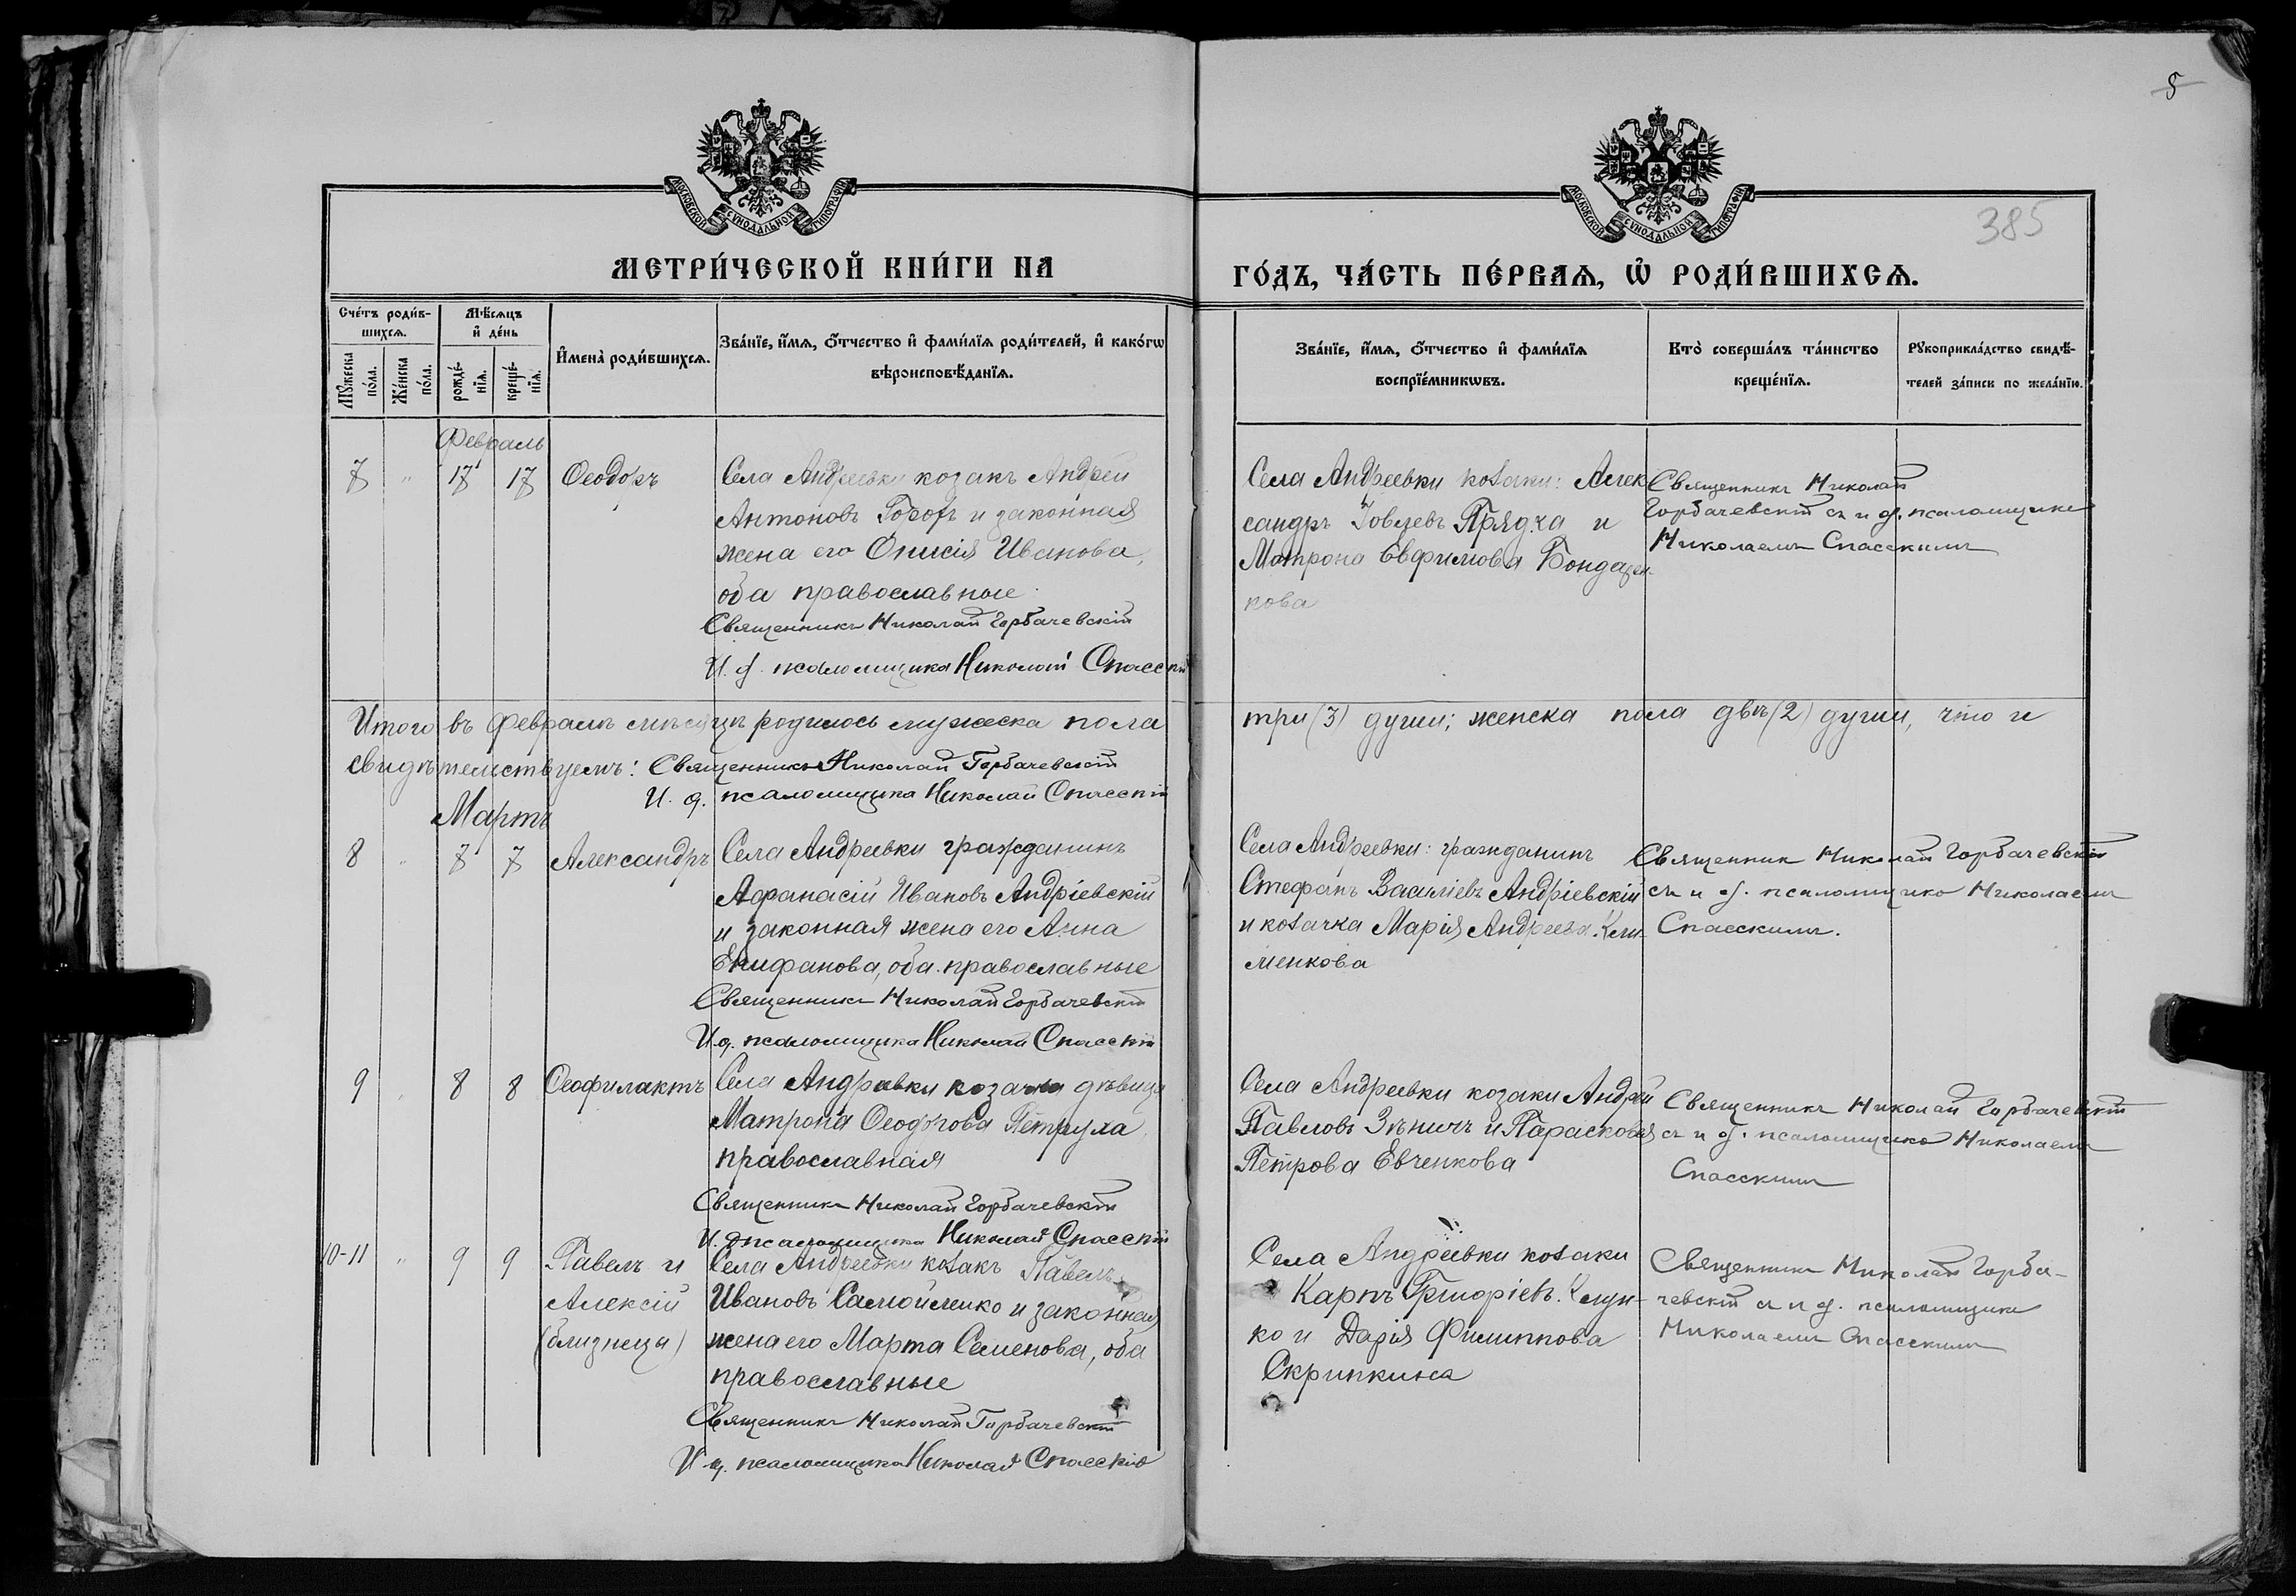 5
385
МОСКОВСКОЙ СѴНОДАЛЬНОЙ ТИПОГРАФІИ
МОСКОВСКОЙ СѴНОДАЛЬНОЙ ТИПОГРАФІИ
МЕТРИ́ЧЕСКОЙ КНИ́ГИ НА
ГО́ДЪ, ЧА́СТЬ ПЕ́РВАѦ, Ѡ҆ РОДИ́ВШИХСѦ.
Сче́тъ роди́в-
шихсѧ.
Мꙋ́жеска по́ла.
Же́нска по́ла.
Мѣ́сѧцъ
и҆ де́нь
рожде́-
нїѧ.
креще́-
нїѧ.
И҆мена̀ роди́вшихсѧ.
Зва́нїе, и҆́мѧ, ѻ҆́тчество и҆ фами́лїѧ роди́телей, и҆ како́гѡ
вѣроисповѣ́данїѧ.
Зва́нїе, и҆́мѧ, ѻ҆́тчество и҆ фами́лїѧ
воспрїе́мникѡвъ.
Кто̀ соверша́лъ та́инство
креще́нїѧ.
Рꙋкоприкла́дство свидѣ́-
телей за́писи по жела́нїю.
Февраль
7 " 17 17 Ѳеодоръ
Села Андреевки козакъ Андрей
Антоновъ и законная
жена его Онисія Иванова,
оба православные.
Священникъ Николай Горбачевскій
И. д. псаломщика Николай Спасскій
Села Андреевки козаки: Алек
сандръ Прядка и
Матрона Евфимова Бондарен-
кова
Священникъ Николай
Горбачевскій съ и. д. псаломщика
Николаемъ Спасскимъ
Итого въ Февралѣ мѣсяцѣ родилось мужеска пола
три (3) души; женска пола двѣ (2) души, что и
свидѣтельствуемъ: Священникъ Николай Горбачевскій
И. д. псаломщика Николай Спасскій
Мартъ
8 " 7 7 Александръ
Села Андреевки гражданинъ
Афанасій Ивановъ Андріевскій
и законная жена его Анна
Епифанова, оба православные
Священникъ Николай Горбачевскій
И. д. псаломщика Николай Спасскій
Села Андреевки: гражданинъ
Стефанъ Василіевъ Андріевскій
и козачка Марія Андреева Кли-
менкова
Священник Николай Горбачевскій
съ и. д. псаломщика Николаемъ
Спасскимъ.
9 " 8 8 Ѳеофилактъ
Села Андреевки козачка дѣвица
Матрона Ѳеодорова Петруха,
православная
Священникъ Николай Горбачевскій
И. д. псаломщика Николай Спасскій
Села Андреевки козаки Андрей
Павловъ Зѣничъ и Парасковія
Петрова Евченкова
Священникъ Николай Горбачевскій
съ и. д. псаломщика Николаемъ
Спасскимъ
10-11 " 9 9 Павелъ и
Алексій
(близнецы)
Села Андреевки козакъ Павелъ
Ивановъ Самойленко и законная
жена его Марта Семенова, оба
православные
Священникъ Николай Горбачевскій
И. д. псаломщика Николай Спасскій
Села Андреевки козаки
Карпъ Григоріевъ
ко и Дарія Филиппова
Скрипкина
Священникъ Николай Горба-
чевскій съ и. д. псаломщика
Николаемъ Спасскимъ